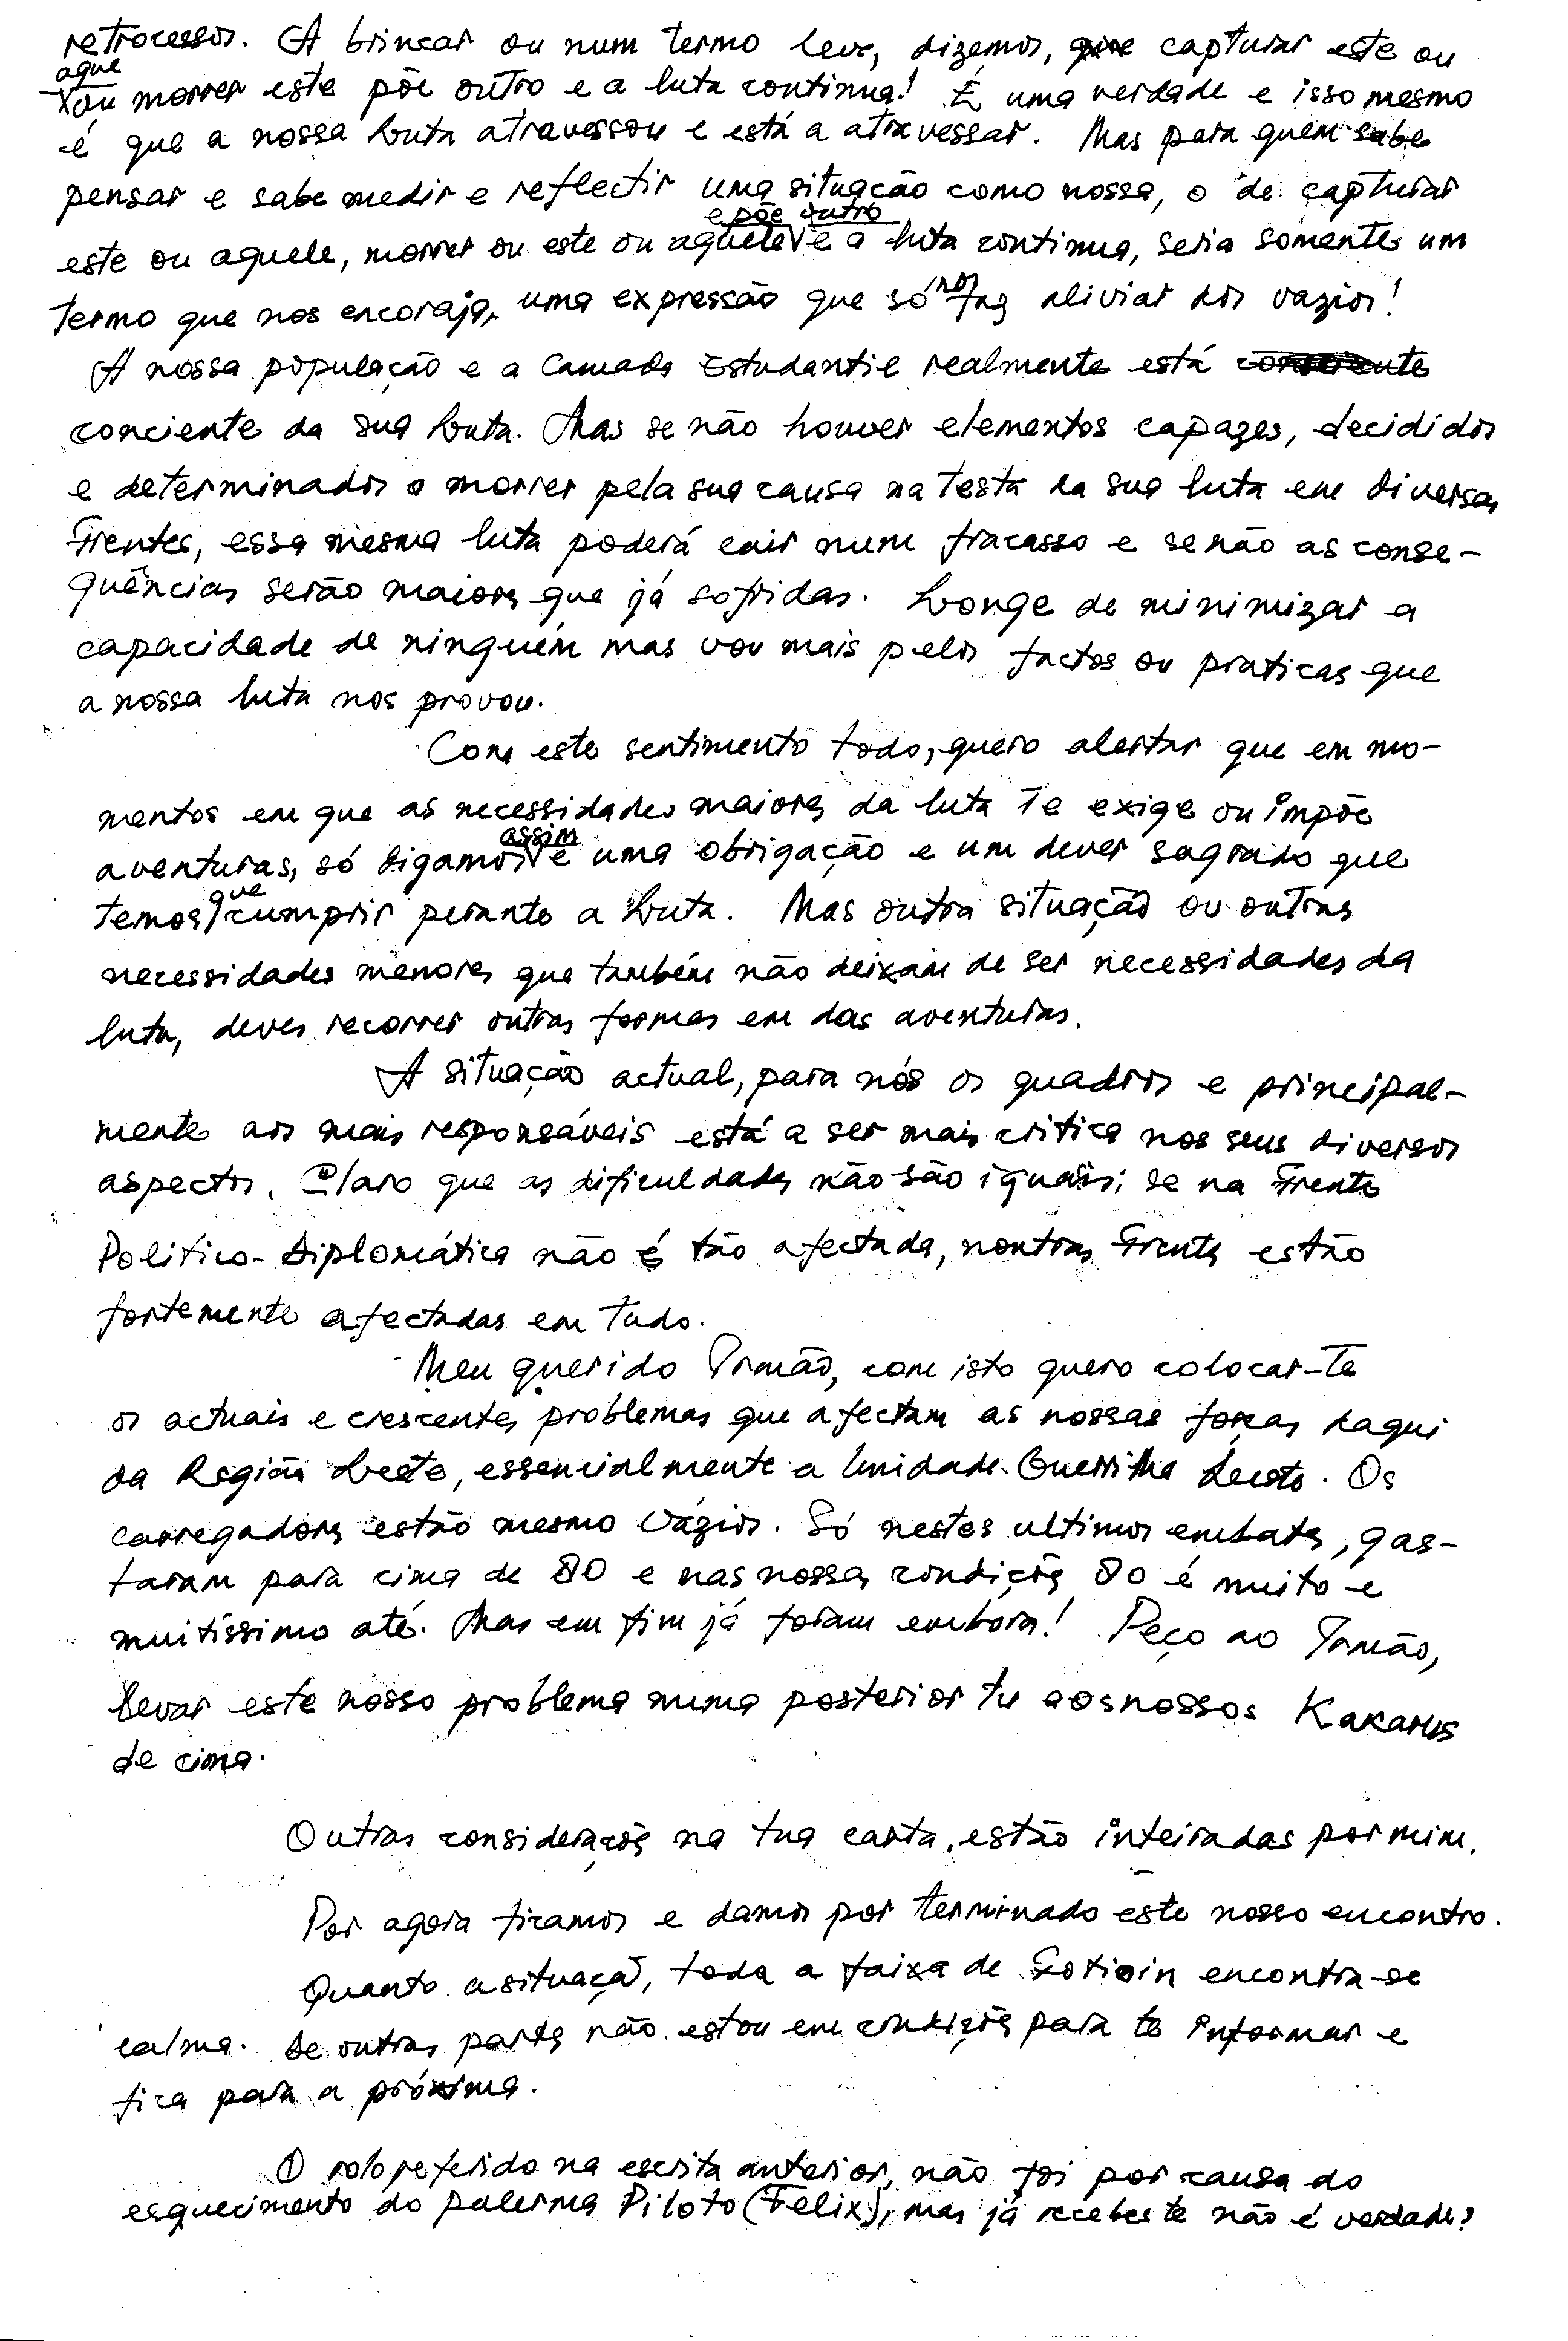 retrocessos. A brincar ou num termo leve, dizemos, que capturar este ou
aque
ou morrer este põe outro e a luta continua! É uma verdade e isso mesmo
é que a nossa Luta atravessou e está a atravessar. Mas para quem sabe
pensar e sabe medir e reflectir uma situação como nossa, o de capturar
e põe outro
este ou aquele, morrer ou este ou aquele e a luta continua, seria somente um
termo que nos encoraja, uma expressão que só nos faz aliviar dos vazios!
A nossa população e a Camada Estudantil realmente está conciente
conciente da sua Luta. Mas se não houver elementos capazes, decididos
e determinados a morrer pela sua causa na testa da sua luta em diversas
Frentes, essa mesma luta poderá cair num fracasso e se não as conse-
quências serão maiores que já sofridas. Longe de minimizar a
capacidade de ninguém mas vou mais pelos factos ou praticas que
a nossa luta nos provou.
Com este sentimento todo, quero alertar que em mo-
mentos em que as necessidades maiores da luta te exige ou impõe
assim
aventuras, só digamos é uma obrigação e um dever sagrado que
que
temos cumprir perante a Luta. Mas outra situação ou outras
necessidades menores que também não deixam de ser necessidades da
luta, deves recorrer outras formas em das aventuras.
A situação actual, para nós os quadros e principal-
mente aos mais responsáveis está a ser mais critica nos seus diversos
aspectos. Claro que as dificuldades não são iguais; se na Frente
Politico-Diplomática não é tão afectada, noutras Frentes estão
fortemente afectadas em tudo.
Meu querido Irmão, com isto quero colocar-te
os actuais e crescentes problemas que afectam as nossas forças daqui
da Região Leste, essencialmente a Unidade Guerrilha Leste. Os
carregadores estão mesmo vázios. Só nestes ultimos embates, gas-
taram para cima de 80 e nas nossas condições 80 é muito e
muitíssimo até. Mas em fim já foram embora! Peço ao Irmão,
levar este nosso problema numa posterior tu aos nossos Kakarus
de cima.
Outras considerações na tua carta, estão inteiradas por mim.
Por agora ficamos e damos por terminado este nosso encontro.
Quanto a situação, toda a faixa de encontra-se
calma. De outras partes não estou em condições para te informar e
fica para a próxima.
O rolo referido na escrita anterior, não foi por causa do
esquecimento do palerma Piloto (Felix), mas já recebeste não é verdade?